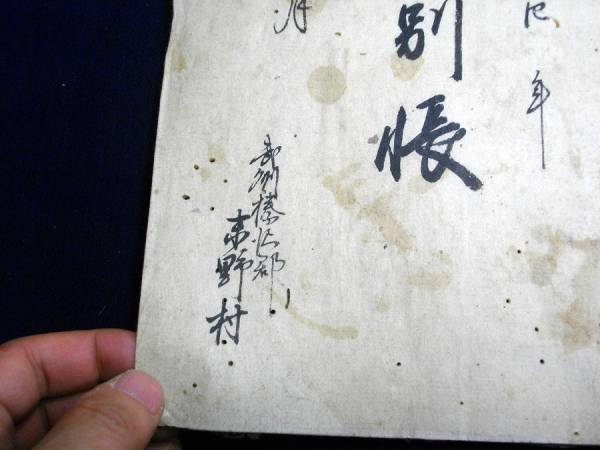 巳年
別帳
月
武州榛沢郡
末野村